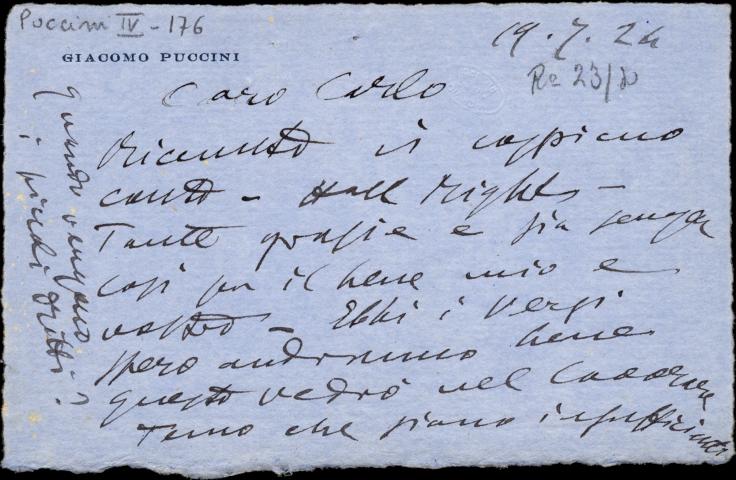 Puccini IV - 176
19. 7. 24
GIACOMO PUCCINI
Ro 23/7
Caro Carlo
Ricevuto il cospicuo
conto - Hall Rights -
Tante grazie e sia sempre
così per il bene mio e
vostro - Ebbi i versi
spero andranno bene
questo vedrò nel lavorare
Temo che siano insufficienti
quando vengono
i piedi dritti?